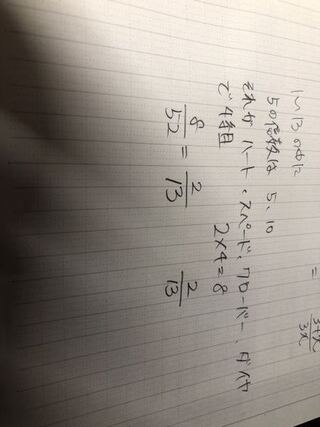 1〜13の中に
5の倍数は 5、10
それが ハート、スペード、クローバー、ダイヤ
で4組 2×4=8
8/52 = 2/13
2/13
=
3+x/3x